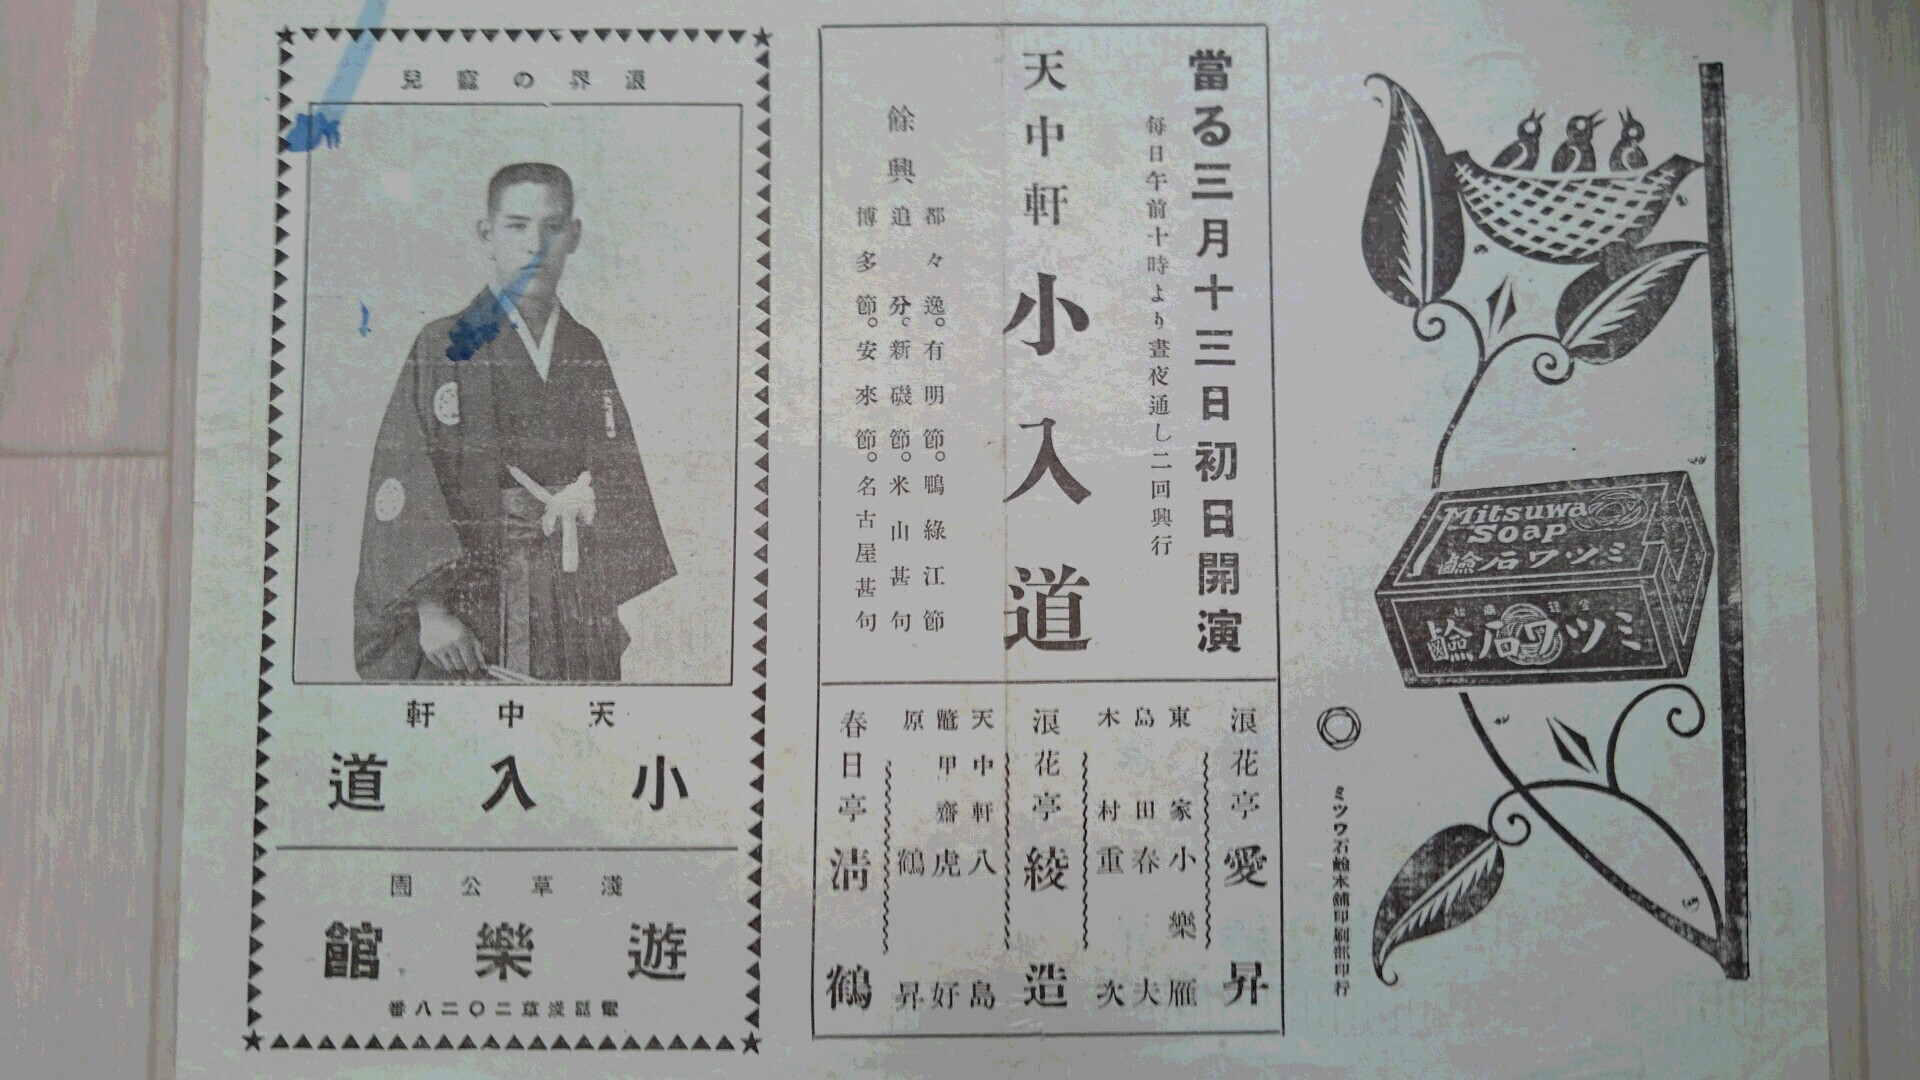 Mitsuwa
Soap
ミツワ石鹼
ミツワ石鹼
ミツワ石鹼本舖印刷部印行
當る三月十三日初日開演
每日午前十時より晝夜通し二回興行
天中軒小入道
餘興
都々逸。有明節。鴨綠江節
追分。新磯節。米山甚句
博多節。安來節。名古屋甚句
浪花亭愛昇
東家小樂雁
島田春夫
木村重次
浪花亭綾造
天中軒八島
鼈甲齋虎好
原鶴昇
春日亭淸鶴
浪界の寵兒
天中軒
小入道
淺草公園
遊樂館
電話淺草二〇二八番